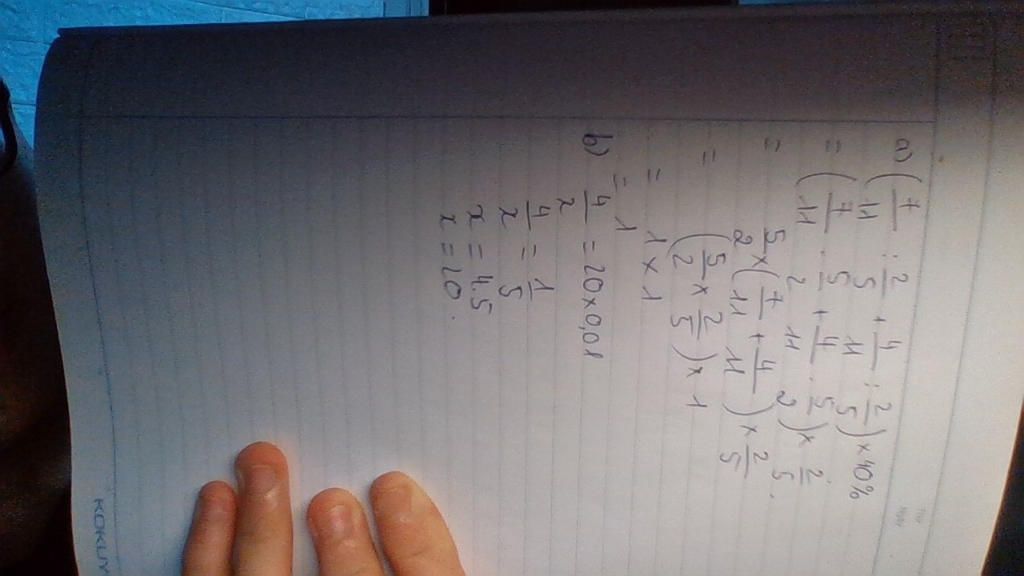 a) ( 7/11 : 2/5 + 4/11 : 2/5 ) x 40%
= ( 7/11 . 5/2 + 4/11 . 5/2 ) x 2/5.
= 5/2 x ( 7/11 + 4/11 ) x 2/5
= ( 5/2 x 2/5 ) x 1
= 1 x 1
= 1
b) 4/x = 20 x 0,01
4/x = 1/5
x = 4.5
x = 20.
KOKUY